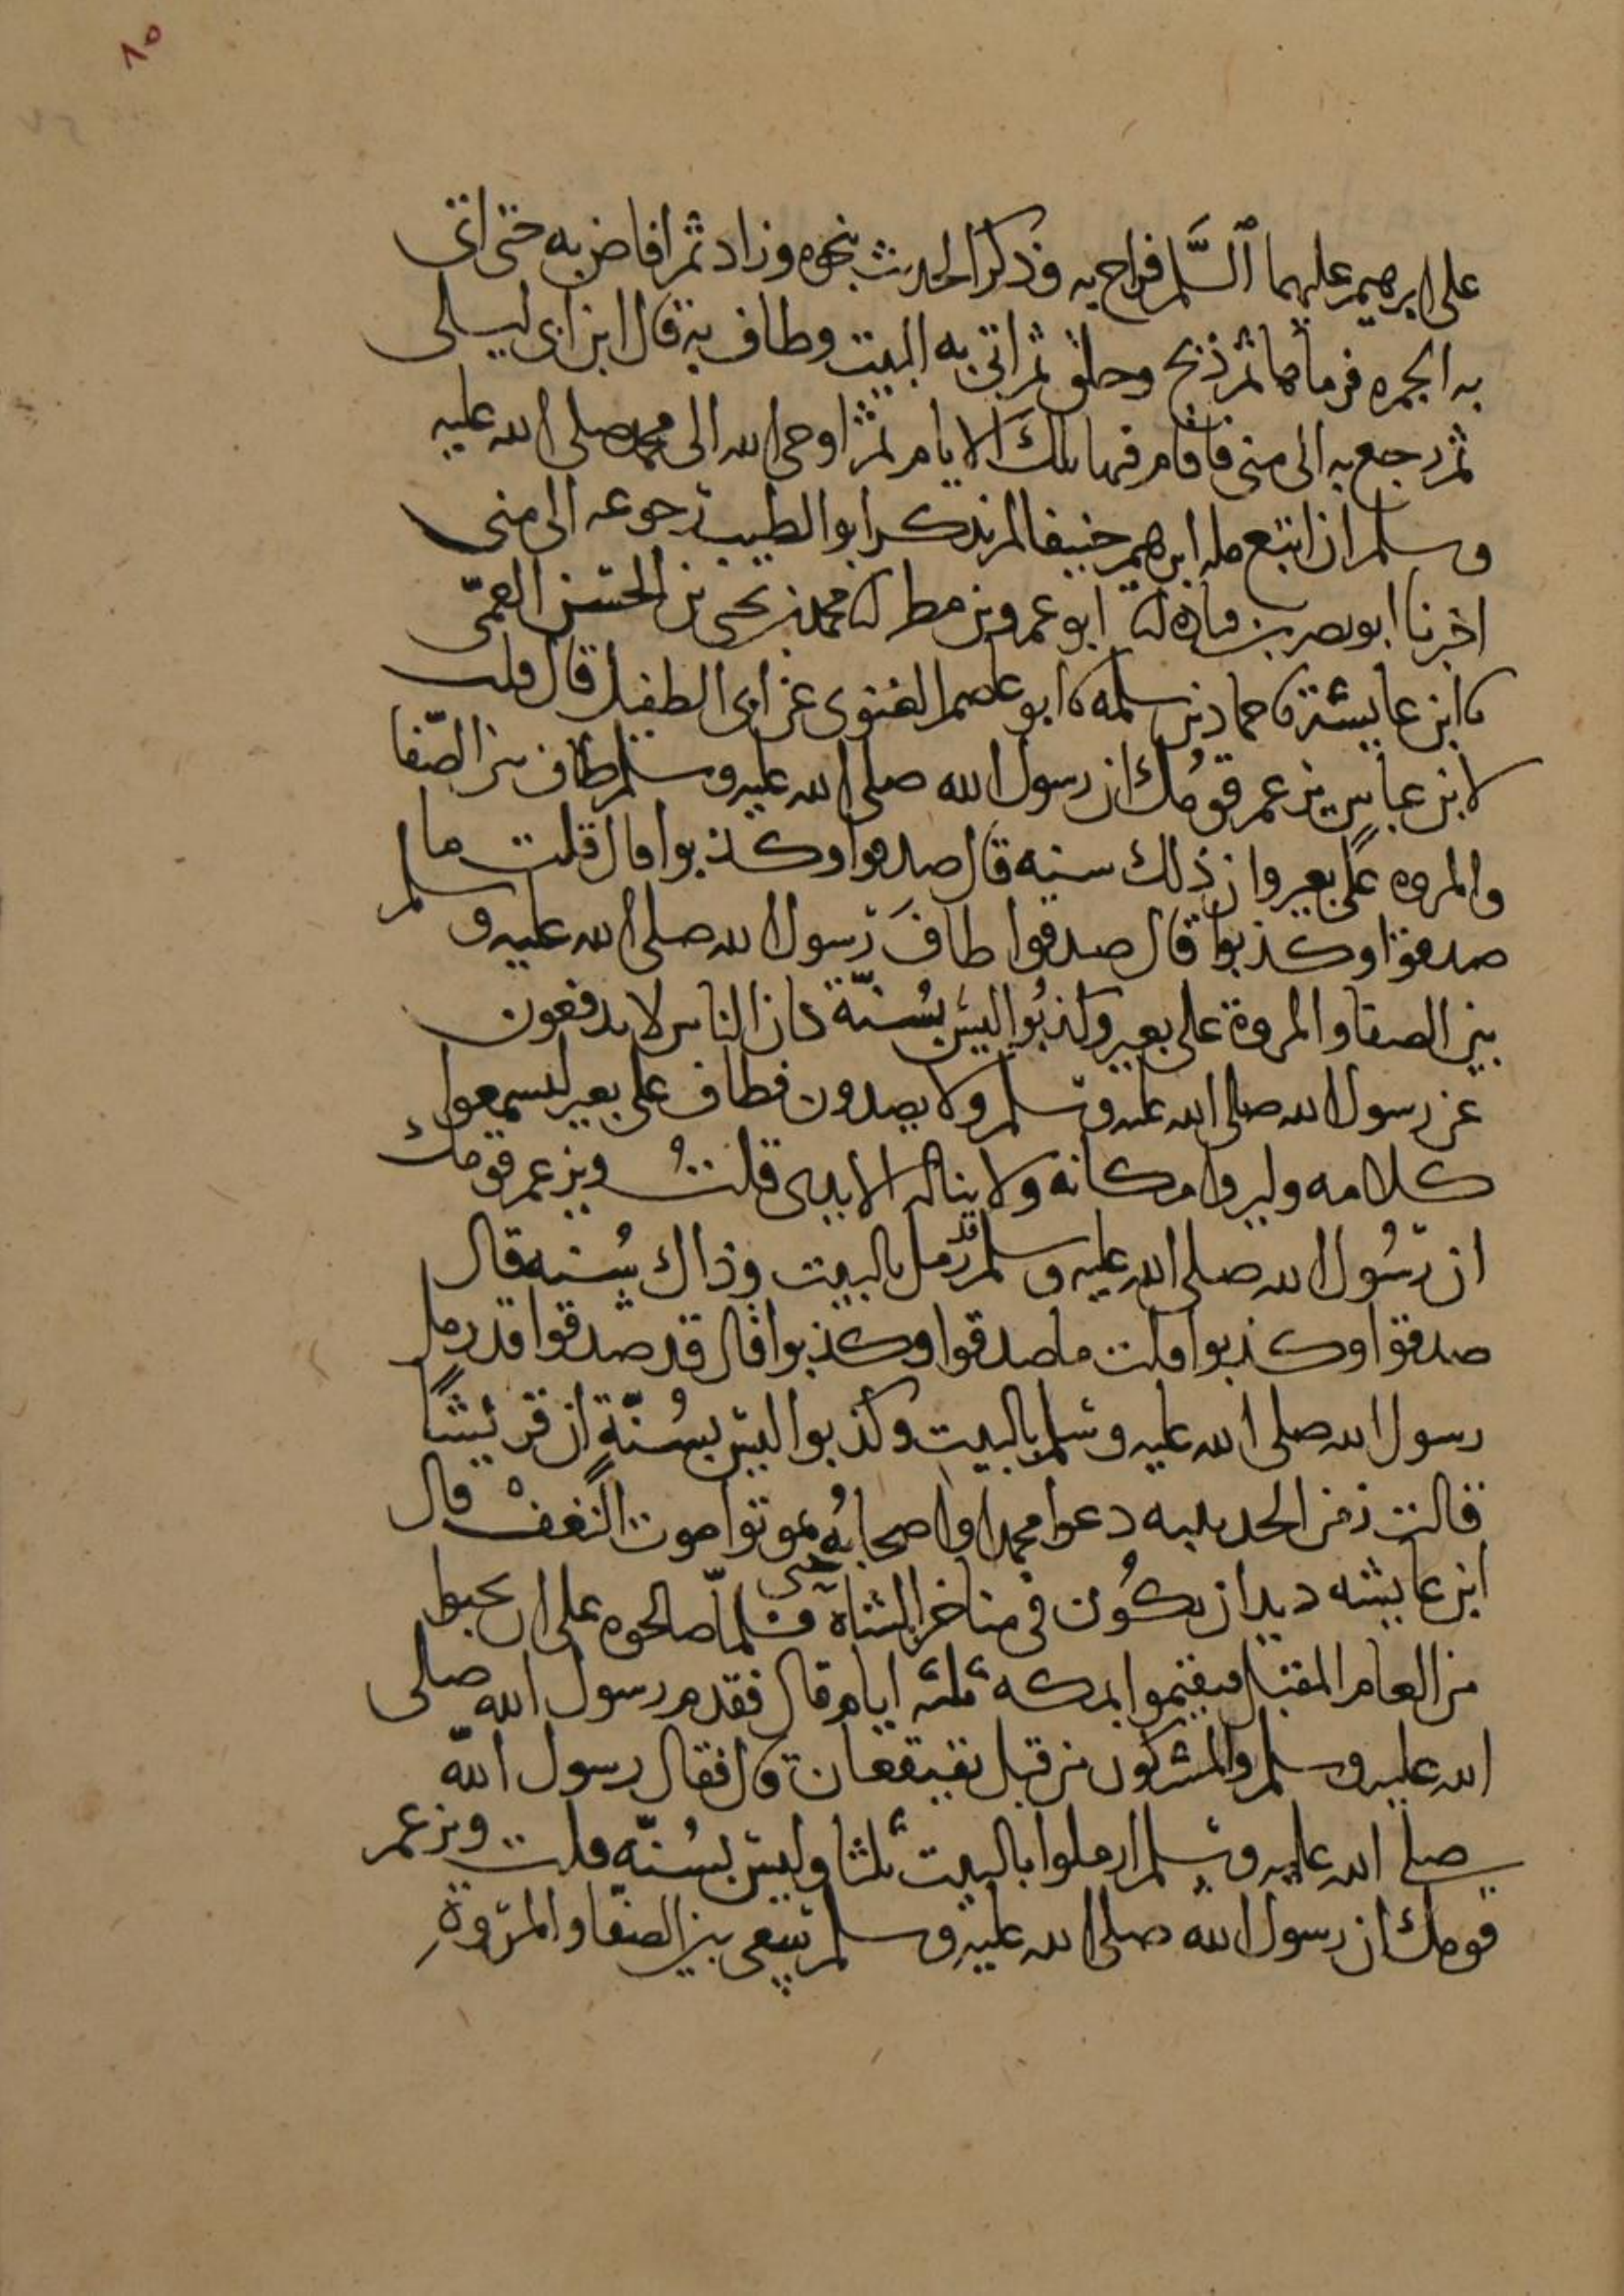 ٨٥
على ابرهيم عليهما السَّلم فراح به وذكر الحديث بنحوه وزاد ثم افاض به حتى اتى
به الجمره فرماها ثم ذبح وحلق ثم اتى به البيت وطاف به قال ابن ابى ليلى
ثم رجع به الى منى فاقام فيها تلك الايام ثم اوحى الله الى محمد صلى الله عليه
وسلم ان اتبع مله ابرهيم حنيفا لم يذكر ابو الطيب رجوعه الى منى
اخبرنا ابو نصر بن قتاده انا ابو عمرو بن مطر انا محمد بن يحيى بن الحسن العمّى
نا ابن عايشة نا حماد بن سلمه نا ابو عاصم الغنوى عن ابى الطفيل قال قلت
لابن عباس يزعم قومُك ان رسول الله صلى الله عليه وسلم طاف بين الصّفا
والمروه على بعير وان ذلك سنه قال صدقوا وكذبوا قال قلت ما
صدقوا وكذبوا قال صدقوا طافَ رسول الله صلى الله عليه وسلم
بين الصفا والمروة على بعير وكذبُوا ليس بسُنّة كان الناس لا يدفعون
عن رسول الله صلى الله عليه وسلم ولا يصدون فطاف على بعير ليسمعوا
كلامه وليروا مكانه ولا يناله الايدى قلتُ ويزعم قومك
ان رسُول الله صلى الله عليه وسلم قد رمل بالبيت وذاك سُنه قال
صدقوا وكذبوا قلت ما صدقوا وكذبوا قال قد صدقوا قد رمل
رسول الله صلى الله عليه وسلم بالبيت وكذبوا ليس بسُنّةٍ ان قريشًا
قالت زمن الحديبيه دعوا محمدا واصحابُه حتى يموتوا موت النغفْ قال
ابن عايشه ديدان يكُون فى مناخر الشاة فلمّا صالحوه على ان يحيوا
من العام المقبل فيقيموا بمكه ثلثه ايام قال فقدم رسول الله صلى
الله عليه وسلم والمشركون من قبل قعيقعان قال فقال رسول الله
صلى الله عليه وسلم ارملوا بالبيت ثلثا وليس بسُنّه قلت ويزعم
قومك ان رسول الله صلى الله عليه وسلم سعى بين الصفا والمروةِ